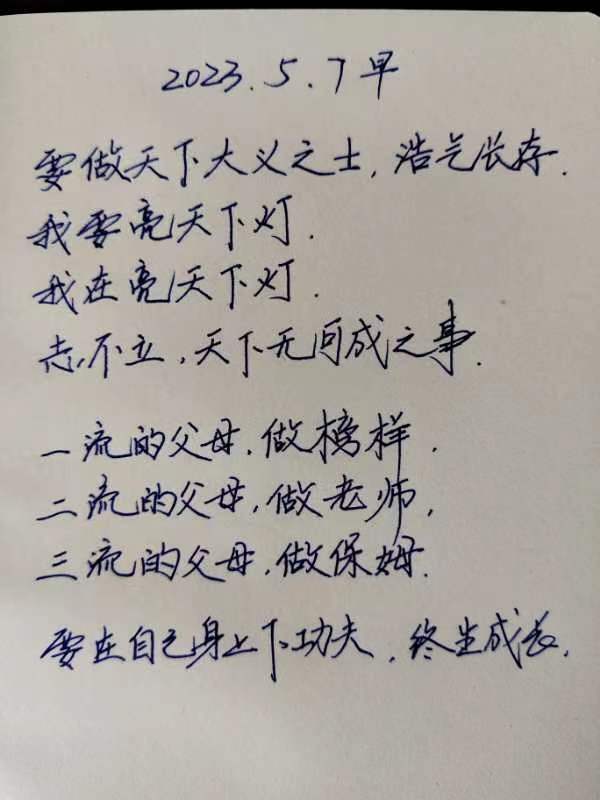 2023.5.7早
要做天下大义之士,浩气长存.
我要亮天下灯.
我在亮天下灯.
志不立,天下无可成之事.
一流的父母,做榜样.
二流的父母,做老师,
三流的父母,做保姆.
要在自己身上下功夫,终生成长.